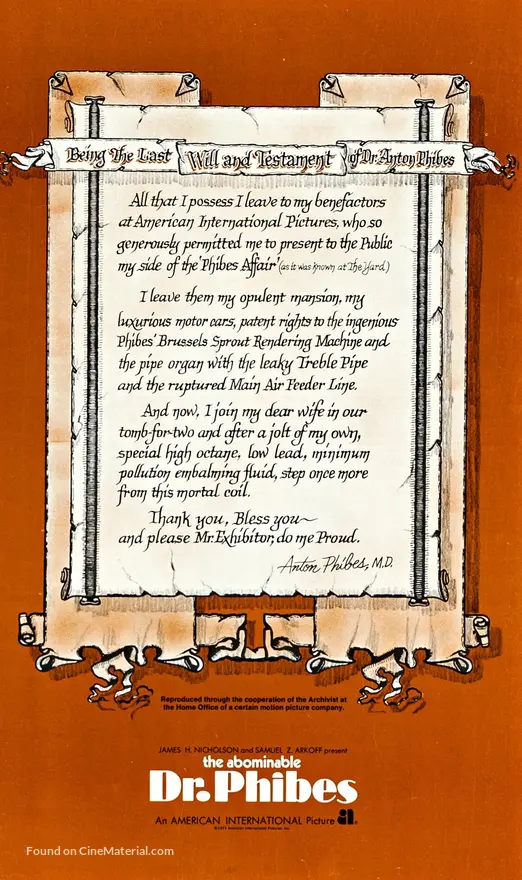 Being The Last Will and Testament of Dr. Anton Phibes
All that I possess I leave to my benefactors
at American International Pictures, who so
generously permitted me to present to the Public
my side of the 'Phibes Affair' (as it was known at The Yard)
I leave them my opulent mansion, my
luxurious motor cars, patent rights to the ingenious
Phibes' Brussels Sprout Rendering Machine and
the pipe organ with the leaky Treble Pipe
and the ruptured Main Air Feeder Line.
And now, I join my dear wife in our
tomb-for-two and after a jolt of my own,
special high octane, low lead, minimum
pollution embalming fluid, step once more
from this mortal coil.
Thank you, Bless you~
and please Mr. Exhibitor, do me Proud.
Anton Phibes, M.D.
Reproduced through the cooperation of the Archivist at
the Home Office of a certain motion picture company.
JAMES H. NICHOLSON and SAMUEL Z. ARKOFF present
the abominable
Dr. Phibes
An AMERICAN INTERNATIONAL Picture a.
©1971 American International Pictures, Inc.
Found on CineMaterial.com